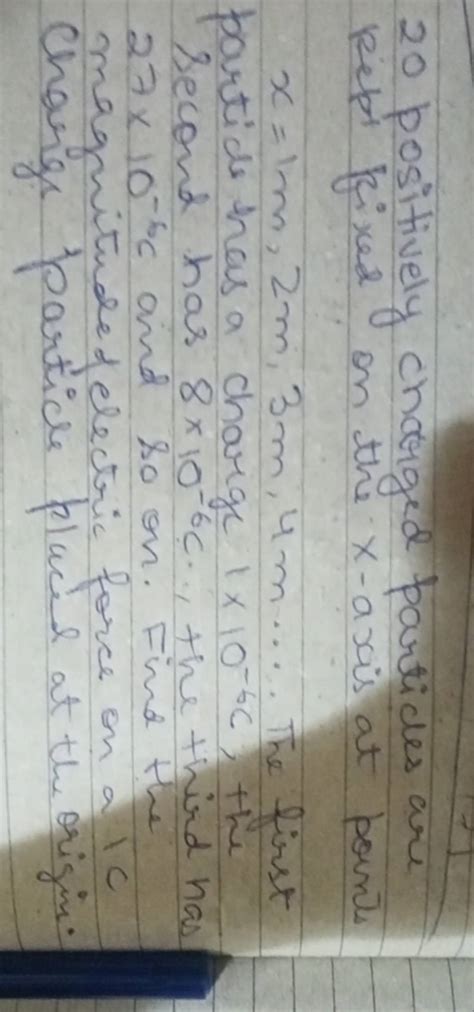 20 positively charged particles are
kept fixed on the x-axis at points
x = 1m, 2m, 3m, 4m..... The first
particle has a charge 1 x 10⁻⁶c, the
second has 8 x 10⁻⁶c.., the third has
27 x 10⁻⁶c and so on. Find the
magnitude electric force on a 1c
charge particle placed at the origin.